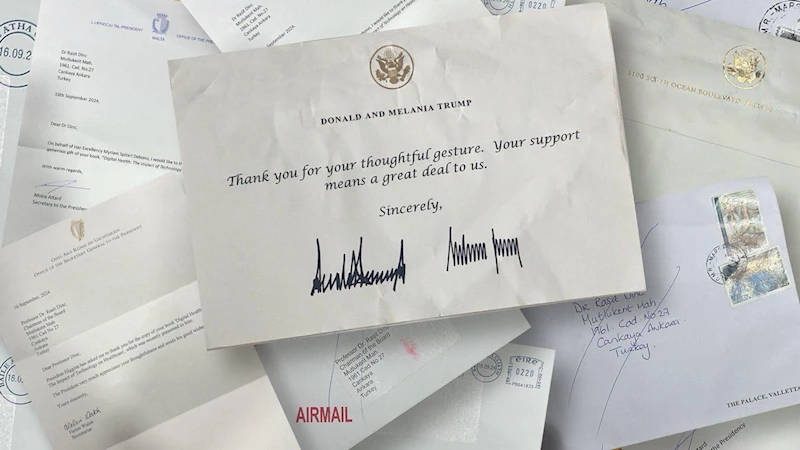 DONALD AND MELANIA TRUMP
Thank you for your thoughtful gesture. Your support
means a great deal to us.
Sincerely,
Dr Rasit Dinc
Mutlukent Mah
1961. Cad. No.27
Cankaya Ankara
Turkey
16th September 2024.
Dear Dr Dinc,
On behalf of Her Excellency Myriam Spiteri Debono, I would like to
generous gift of your book, "Digital Health: The Impact of Technology
With warm regards,
Mary Attard
Secretary to the President
16.09.24
OFFICE OF THE SECRETARY GENERAL TO THE PRESIDENT
16 September, 2024
Professor Dr. Rasit Dinc
Chairman of the Board
Mutlukent Mah
1961 Cad No 27
Cankaya
Ankara
Turkey
Dear Professor Dinc,
President Higgins has asked me to thank you for the copy of your book 'Digital Health
the Impact of Technology on Healthcare', which was recently presented to him.
The President very much appreciates your thoughtfulness and sends his good wishes
Yours sincerely,
Professor Dr Rasit Dinc
Chairman of the Board
Mutlukent Mah
1961 Cad No 27
Cankaya
Ankara
Turkey
AIRMAIL
EIRE
0220
SOUTH OCEAN BOULEVARD
Dr. Rasit Dinc
Mutlukent Mah.
1961. Cad No.27
Cankaya Ankara
Turkey.
THE PALACE, VALLETTA